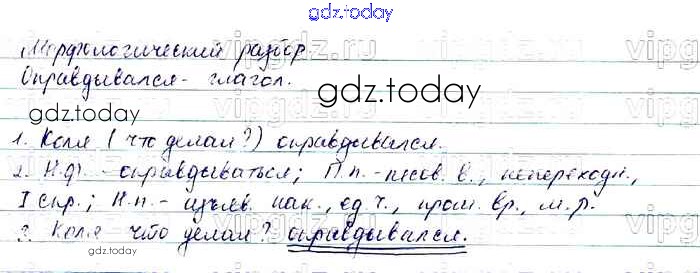 gdz.today
Морфологический разбор.
Оправдывался - глагол.
gdz.today
gdz.today
1. Коля (что делал?) оправдывался.
2. Н.ф. - оправдываться; П.п. - несов. в., непереходн.,
I спр.; Н.п. - изъяв. нак., ед. ч., прош. вр., м.р.
3. Коля что делал? оправдывался.
gdz.today